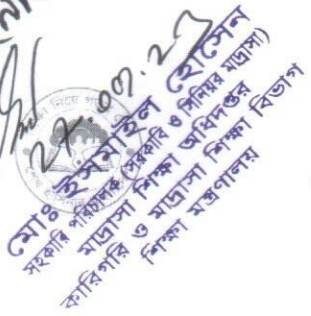 ২৮.০৩.২৭
মোঃ ইসমাইল হোসেন
সহকারি পরিচালক (সরকারি ও সিনিয়র মাদ্রাসা)
মাদ্রাসা শিক্ষা অধিদপ্তর
কারিগরি ও মাদ্রাসা শিক্ষা বিভাগ
শিক্ষা মন্ত্রণালয়